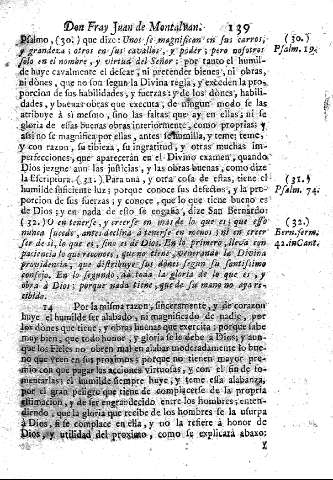 Don Fray Juan de Montalvan. 139
Psalmo, (30.) que dize: Unos se magnifican en sus carros,
y grandeza; otros en sus cavallos, y poder; pero nosotros
solo en el nombre, y virtud del Señor: por tanto el humil-
de huye cavalmente el desear, ni pretender bienes, ni obras,
ni dones, que no son segun la Divina regla, y exceden la pro-
porcion de sus habilidades, y fuerzas; y de los dones, habili-
dades, y buenas obras que executa, de ningun modo se las
atribuye à si mesmo, sino las faltas que ay en ellas; ni se
gloria de essas buenas obras interiormente, como proprias; y
assi no se magnifica por ellas, antes se humilla, y teme; teme,
y con razon, su tibieza, su ingratitud, y otras muchas im-
perfecciones, que aparecerán en el Divino examen, quando
Dios juzgue aun las justicias, y las obras buenas, como dize
la Escriptura. (31.) Para una, y otra cosa de estas, tiene el
humilde suficiente luz; porque conoce sus defectos, y la pro-
porcion de sus fuerzas; y conoce, que lo que tiene bueno es
de Dios; y en nada de esso se engaña, dize San Bernardo:
(32.) O en tenerse, y creerse in mas de lo que es; que esso
nunca sucede, antes declina à tenerse en menos; ni en creer
ser de si, lo que es, sino es de Dios. En lo primero, lleva con
paciencia lo que reconoce, que no tiene, venerando la Divina
providencia; que distribuye sus dones segun su santissimo
consejo. En lo segundo dà toda la gloria de lo que es, y
obra à Dios; porque nada tiene, que de su mano no aya re-
cibido.
14 Por la misma razon, sinceramente, y de corazon
huye el humilde ser alabado, ni magnificado de nadie, por
los dones que tiene, y obras buenas que exercita; porque sabe
muy bien, que todo honor, y gloria se le debe à Dios; y aun-
que los Fieles no obren mal en alabar moderadamente lo bue-
no que vèen en sus proximos; porque no tienen mayor pre-
mio con que pagar las acciones virtuosas, y con el fin de fo-
mentarlas; el humilde siempre huye, y teme essa alabanza,
por el gran peligro que tiene de complacerse de la propria
estimacion, y de ser engrandecido entre los hombres; enten-
diendo, que la gloria que recibe de los hombres se la usurpa
à Dios, si se complace en ella, y no la refiere à honor de
Dios, y utilidad del proximo, como se explicarà abaxo:
(30.)
Psalm. 19.
(31.)
Psalm. 74.
(32.)
Bern. serm.
42. in Cant.